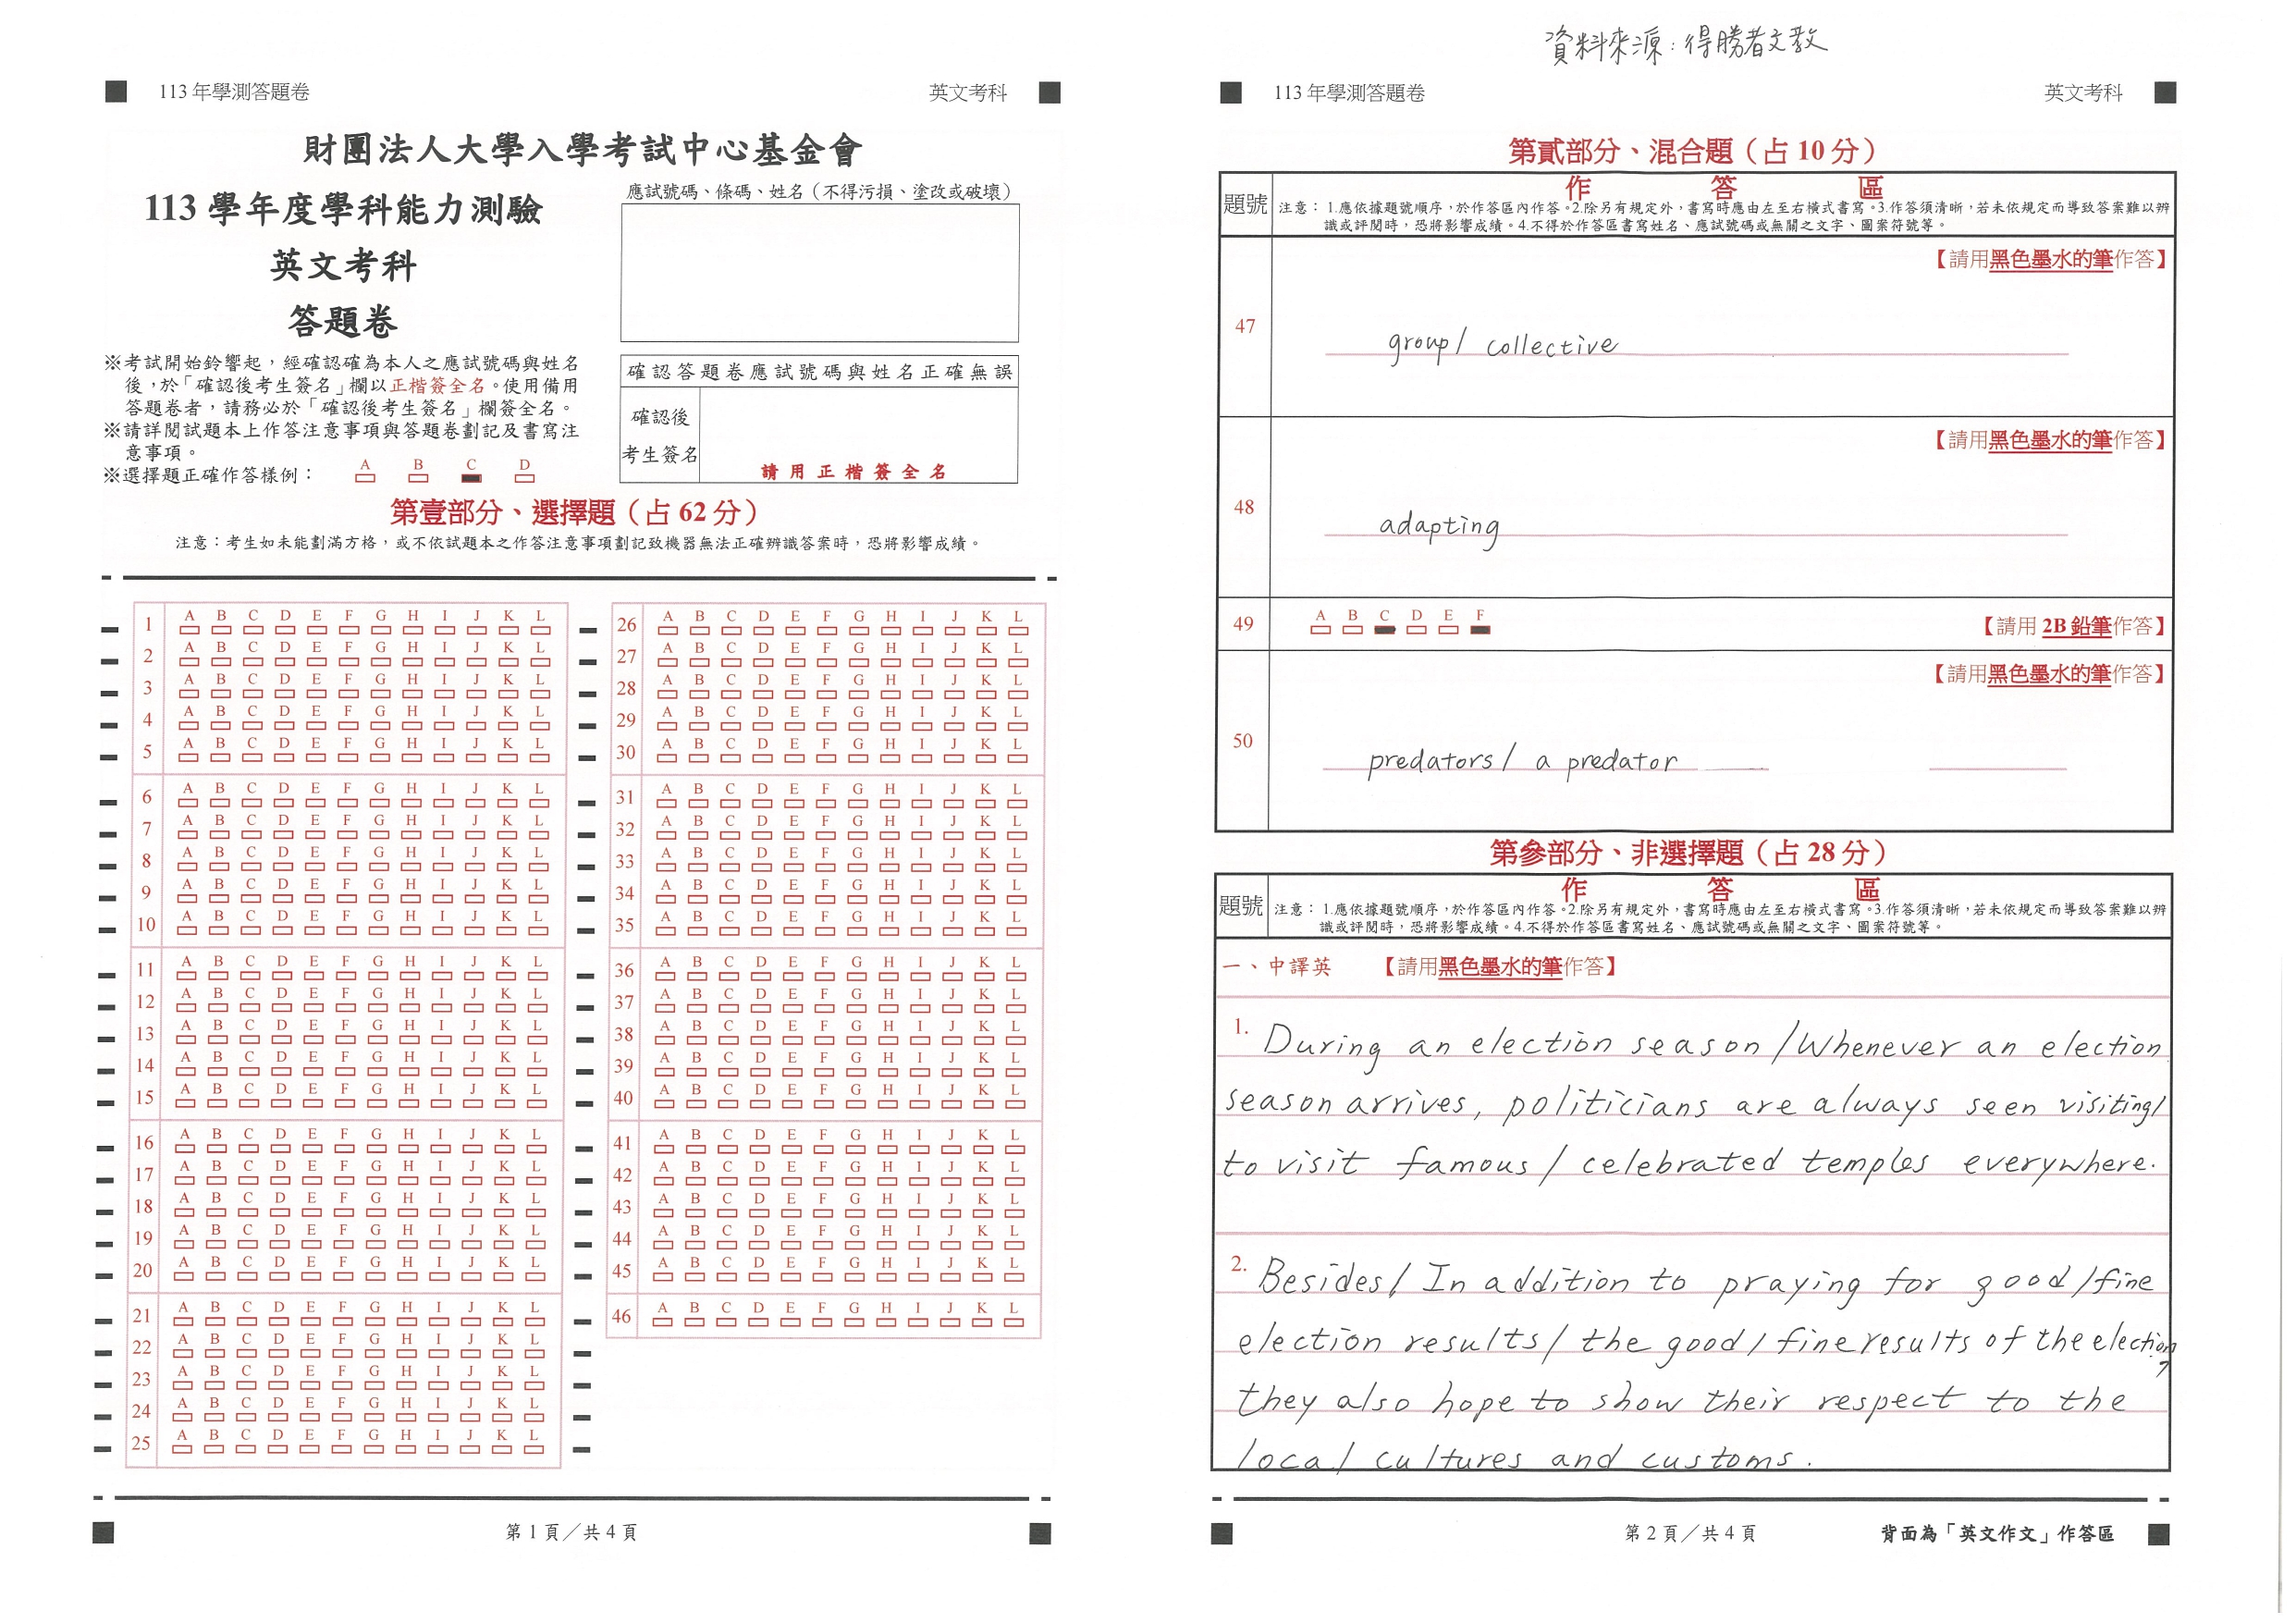 113 年學測答題卷
英文考科
財團法人大學入學考試中心基金會
113 學年度學科能力測驗
英文考科
答題卷
應試號碼、條碼、姓名（不得污損、塗改或破壞）
※考試開始鈴響起，經確認確為本人之應試號碼與姓名
後，於「確認後考生簽名」欄以正楷簽全名。使用備用
答題卷者，請務必於「確認後考生簽名」欄簽全名。
※請詳閱試題本上作答注意事項與答題卷劃記及書寫注
意事項。
※選擇題正確作答樣例：
A B C D
確認答題卷應試號碼與姓名正確無誤
確認後
考生簽名
請用正楷簽全名
第壹部分、選擇題（占 62 分）
注意：考生如未能劃滿方格，或不依試題本之作答注意事項劃記致機器無法正確辨識答案時，恐將影響成績。
1 A B C D E F G H I J K L
2 A B C D E F G H I J K L
3 A B C D E F G H I J K L
4 A B C D E F G H I J K L
5 A B C D E F G H I J K L
6 A B C D E F G H I J K L
7 A B C D E F G H I J K L
8 A B C D E F G H I J K L
9 A B C D E F G H I J K L
10 A B C D E F G H I J K L
11 A B C D E F G H I J K L
12 A B C D E F G H I J K L
13 A B C D E F G H I J K L
14 A B C D E F G H I J K L
15 A B C D E F G H I J K L
16 A B C D E F G H I J K L
17 A B C D E F G H I J K L
18 A B C D E F G H I J K L
19 A B C D E F G H I J K L
20 A B C D E F G H I J K L
21 A B C D E F G H I J K L
22 A B C D E F G H I J K L
23 A B C D E F G H I J K L
24 A B C D E F G H I J K L
25 A B C D E F G H I J K L
26 A B C D E F G H I J K L
27 A B C D E F G H I J K L
28 A B C D E F G H I J K L
29 A B C D E F G H I J K L
30 A B C D E F G H I J K L
31 A B C D E F G H I J K L
32 A B C D E F G H I J K L
33 A B C D E F G H I J K L
34 A B C D E F G H I J K L
35 A B C D E F G H I J K L
36 A B C D E F G H I J K L
37 A B C D E F G H I J K L
38 A B C D E F G H I J K L
39 A B C D E F G H I J K L
40 A B C D E F G H I J K L
41 A B C D E F G H I J K L
42 A B C D E F G H I J K L
43 A B C D E F G H I J K L
44 A B C D E F G H I J K L
45 A B C D E F G H I J K L
46 A B C D E F G H I J K L
第 1 頁／共 4 頁
資料來源：得勝者文教
113 年學測答題卷
英文考科
第貳部分、混合題（占 10 分）
題號
作 答 區
注意：1.應依據題號順序，於作答區內作答。2.除另有規定外，書寫時應由左至右橫式書寫。3.作答須清晰，若未依規定而導致答案難以辨
識或評閱時，恐將影響成績。4.不得於作答區書寫姓名、應試號碼或無關之文字、圖案符號等。
【請用黑色墨水的筆作答】
47
group/ collective
【請用黑色墨水的筆作答】
48
adapting
49 A B C D E F
【請用 2B 鉛筆作答】
【請用黑色墨水的筆作答】
50
predators/ a predator
第參部分、非選擇題（占 28 分）
題號
作 答 區
注意：1.應依據題號順序，於作答區內作答。2.除另有規定外，書寫時應由左至右橫式書寫。3.作答須清晰，若未依規定而導致答案難以辨
識或評閱時，恐將影響成績。4.不得於作答區書寫姓名、應試號碼或無關之文字、圖案符號等。
一、中譯英 【請用黑色墨水的筆作答】
1. During an election season /Whenever an election
season arrives, politicians are always seen visiting/
to visit famous / celebrated temples everywhere.
2. Besides/ In addition to praying for good/fine
election results/ the good/ fine results of the election,
they also hope to show their respect to the
local cultures and customs.
第 2 頁／共 4 頁
背面為「英文作文」作答區